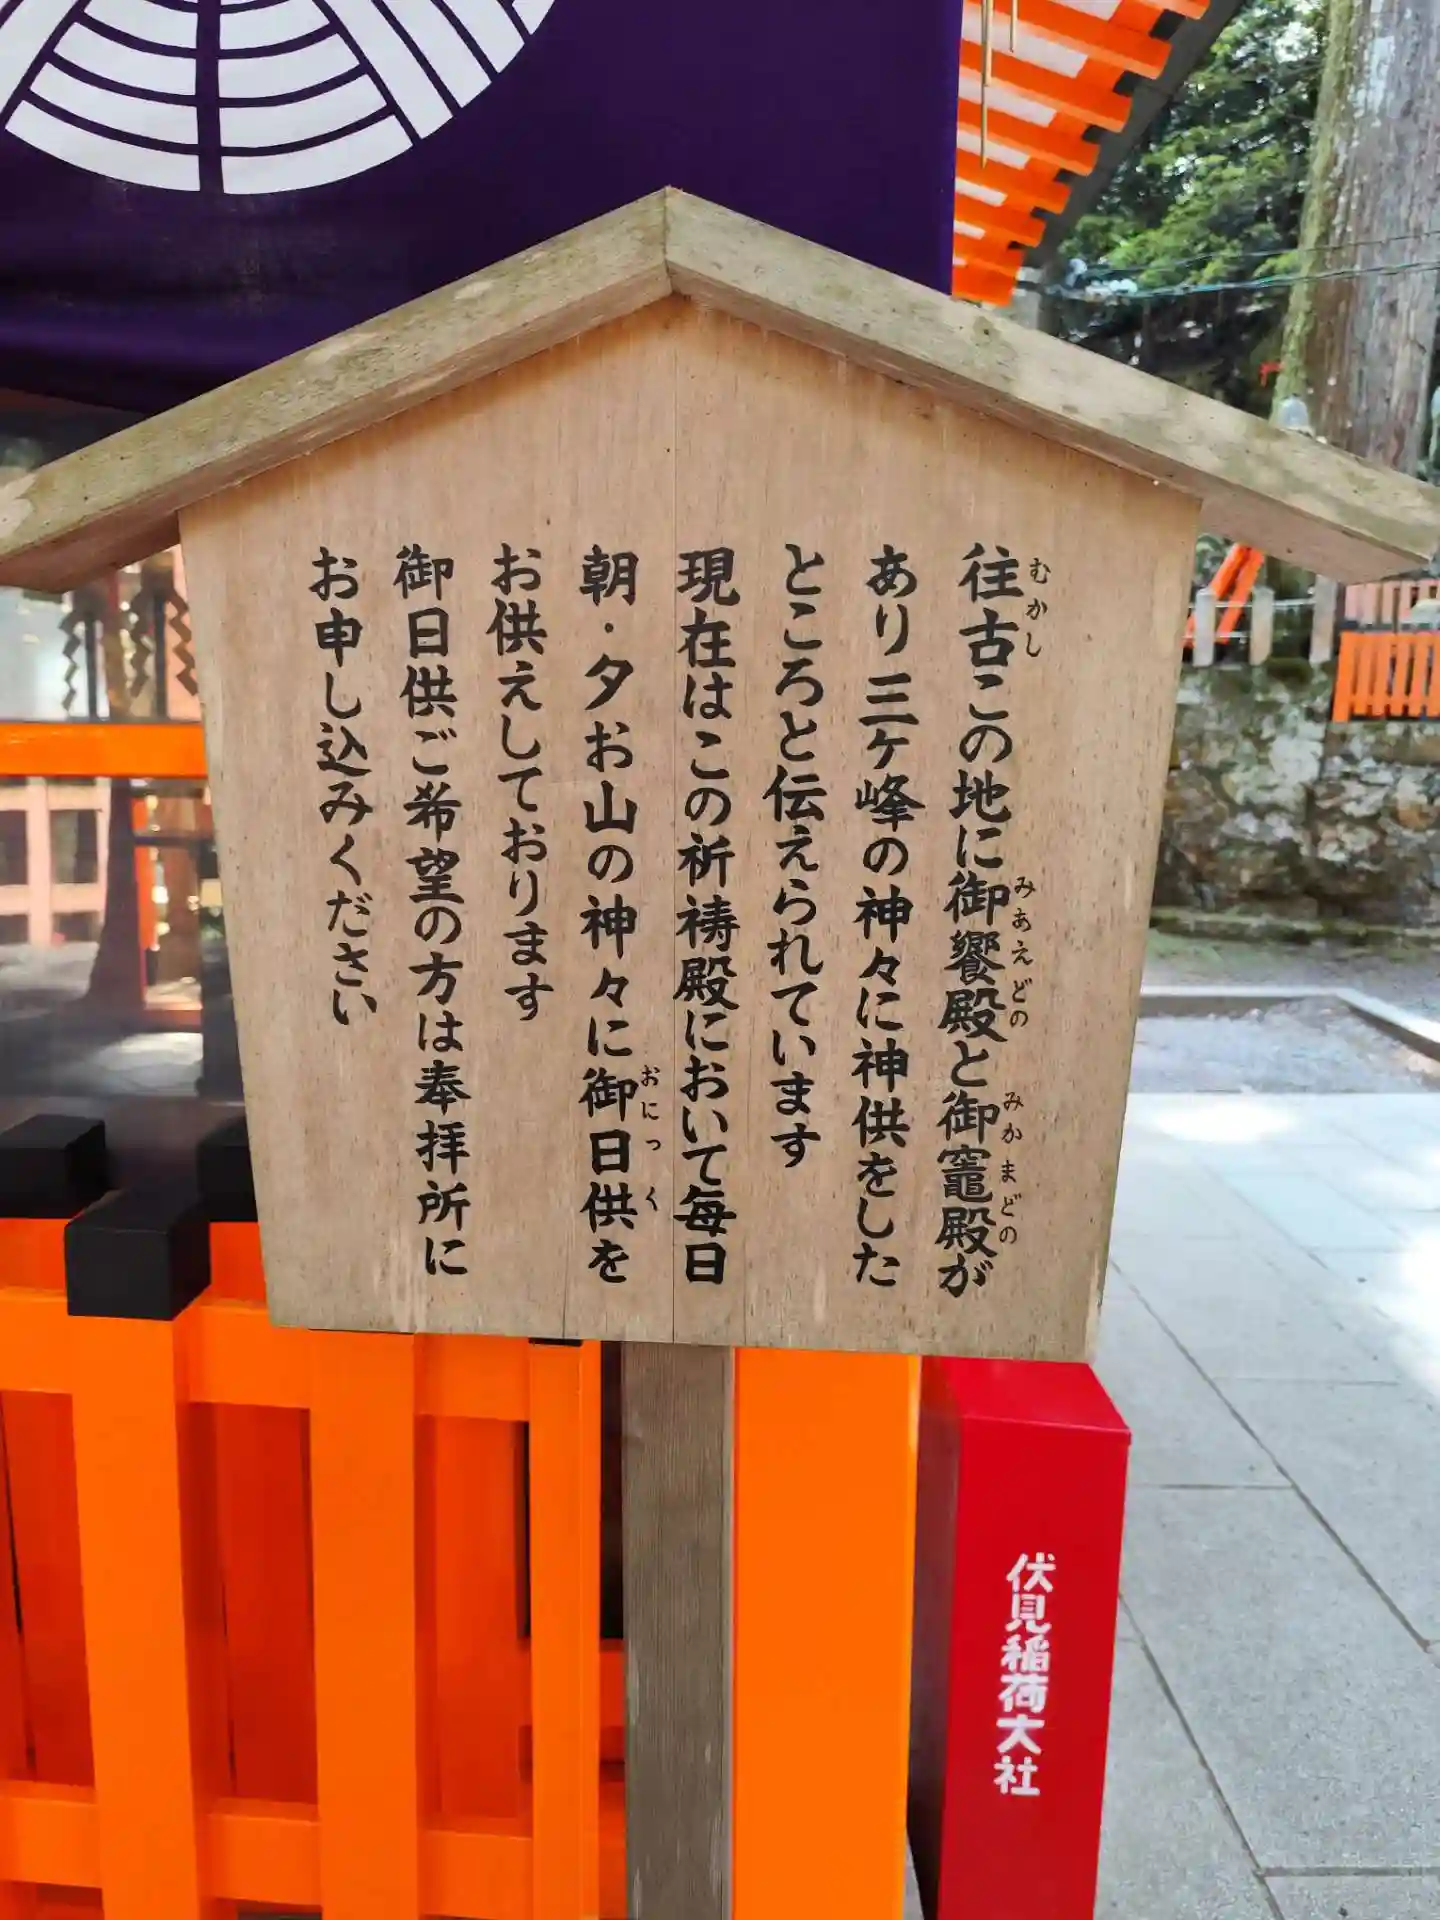 往古この地に御饗殿と御竈殿が
むかし
みあえどの
みかまどの
あり三ヶ峰の神々に神供をした
ところと伝えられています
現在はこの祈祷殿において毎日
朝・夕お山の神々に御日供を
おにっく
お供えしております
御日供ご希望の方は奉拝所に
お申し込みください
伏見稲荷大社